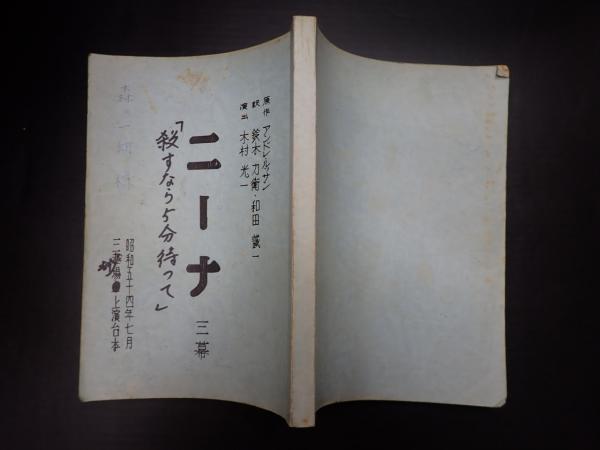 原作 アンドレ・ルッサン
訳 鈴木力衛・和田誠一
演出 木村光一
ニーナ 三幕
「殺すなら5分待って」
昭和五十四年七月
三越劇場上演台本